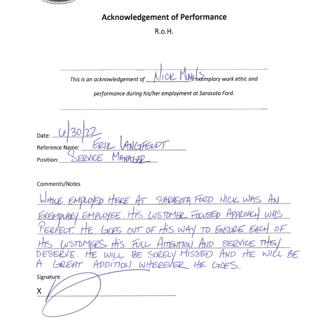 Acknowledgement of Performance
R.o.H.
This is an acknowledgement of Nick Mills exemplary work ethic and
performance during his/her employment at Sarasota Ford.
Date: 6/30/22
Reference Name: Erik Langfeldt
Position: Service Manager
Comments/Notes
While employed here at Sarasota Ford Nick was an
exemplary employee. His customer focused approach was
perfect. He goes out of his way to ensure each of
his customers his full attention and service they
deserve. He will be sorely missed and he will be
a great addition wherever he goes.
Signature
X